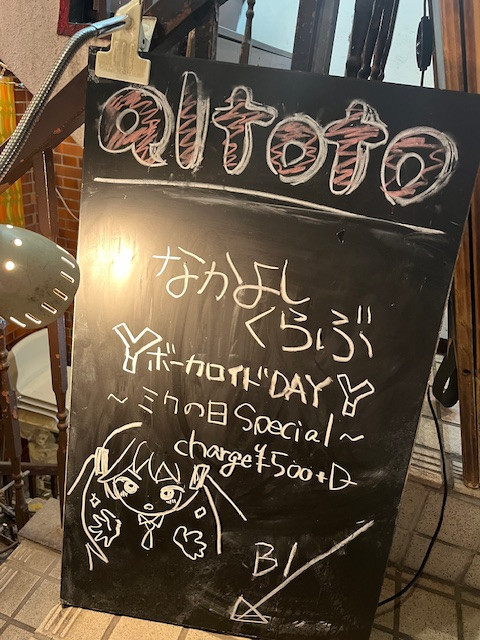 altoto
なかよし
くらぶ
ボーカロイドDAY
～ミクの日Special～
charge¥500+D
B1